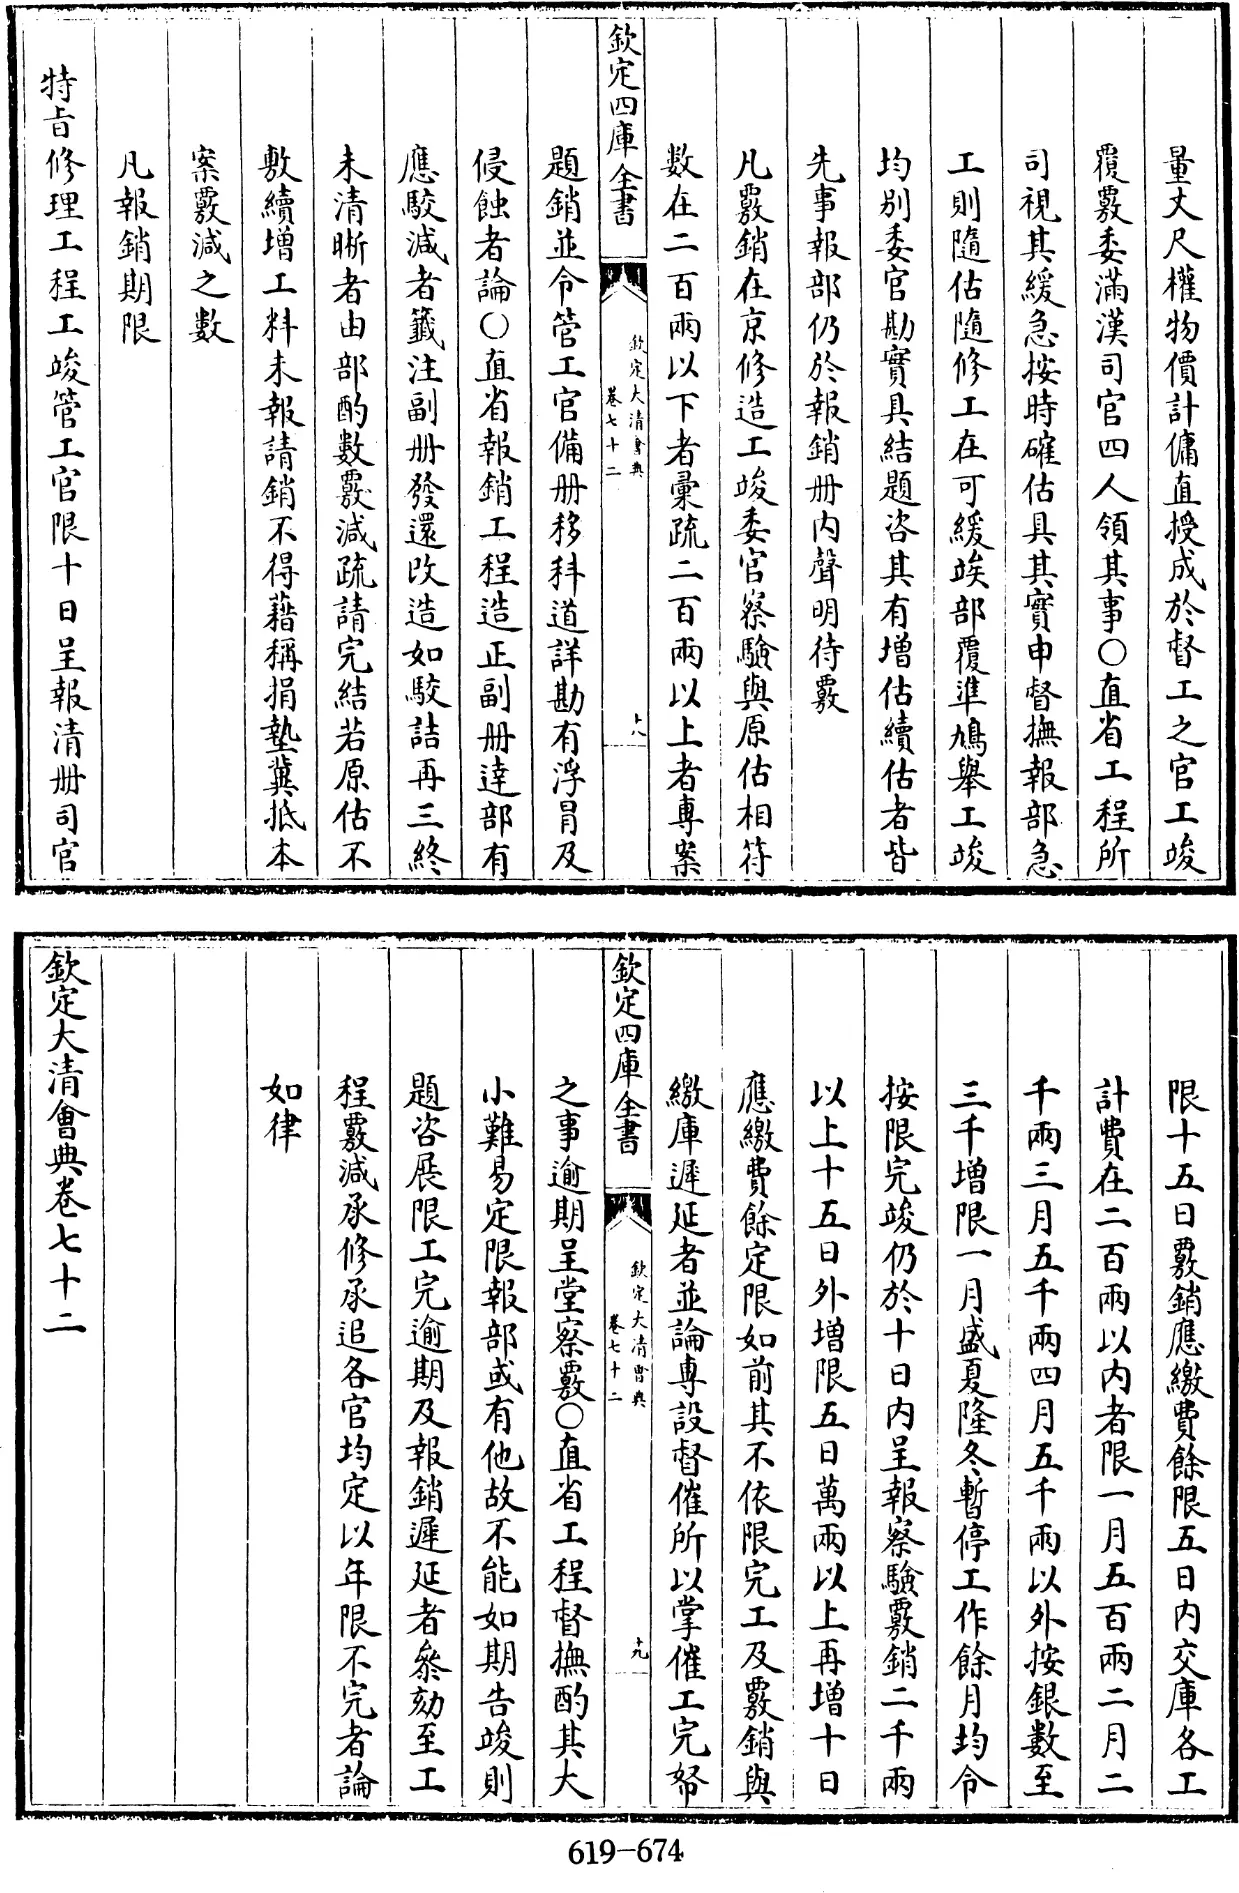 量丈尺權物價計傭直授成於督工之官工竣
覆覈委滿漢司官四人領其事○直省工程所
司視其緩急按時確估具其實申督撫報部急
工則隨估隨修工在可緩竢部覆準鳩舉工竣
均別委官勘實具結題咨其有增估續估者皆
先事報部仍於報銷册内聲明待覈
凡覈銷在京修造工竣委官察驗與原估相符
數在二百兩以下者彙疏二百兩以上者專案
欽定四庫全書
欽定大清會典
卷七十二
十八
題銷並令管工官備册移科道詳勘有浮冒及
侵蝕者論○直省報銷工程造正副册達部有
應駮減者籤注副册發還改造如駮詰再三終
未清晰者由部酌數覈減疏請完結若原估不
敷續增工料未報請銷不得藉稱捐墊冀抵本
案覈減之數
凡報銷期限
特旨修理工程工竣管工官限十日呈報清册司官
限十五日覈銷應繳費餘限五日内交庫各工
計費在二百兩以内者限一月五百兩二月二
千兩三月五千兩四月五千兩以外按銀數至
三千增限一月盛夏隆冬暫停工作餘月均令
按限完竣仍於十日内呈報察驗覈銷二千兩
以上十五日外增限五日萬兩以上再增十日
應繳費餘定限如前其不依限完工及覈銷與
繳庫遲延者並論專設督催所以掌催工完帑
欽定四庫全書
欽定大清會典
卷七十二
十九
之事逾期呈堂察覈○直省工程督撫酌其大
小難易定限報部或有他故不能如期告竣則
題咨展限工完逾期及報銷遲延者叅劾至工
程覈減承修承追各官均定以年限不完者論
如律
欽定大清會典卷七十二
619-674